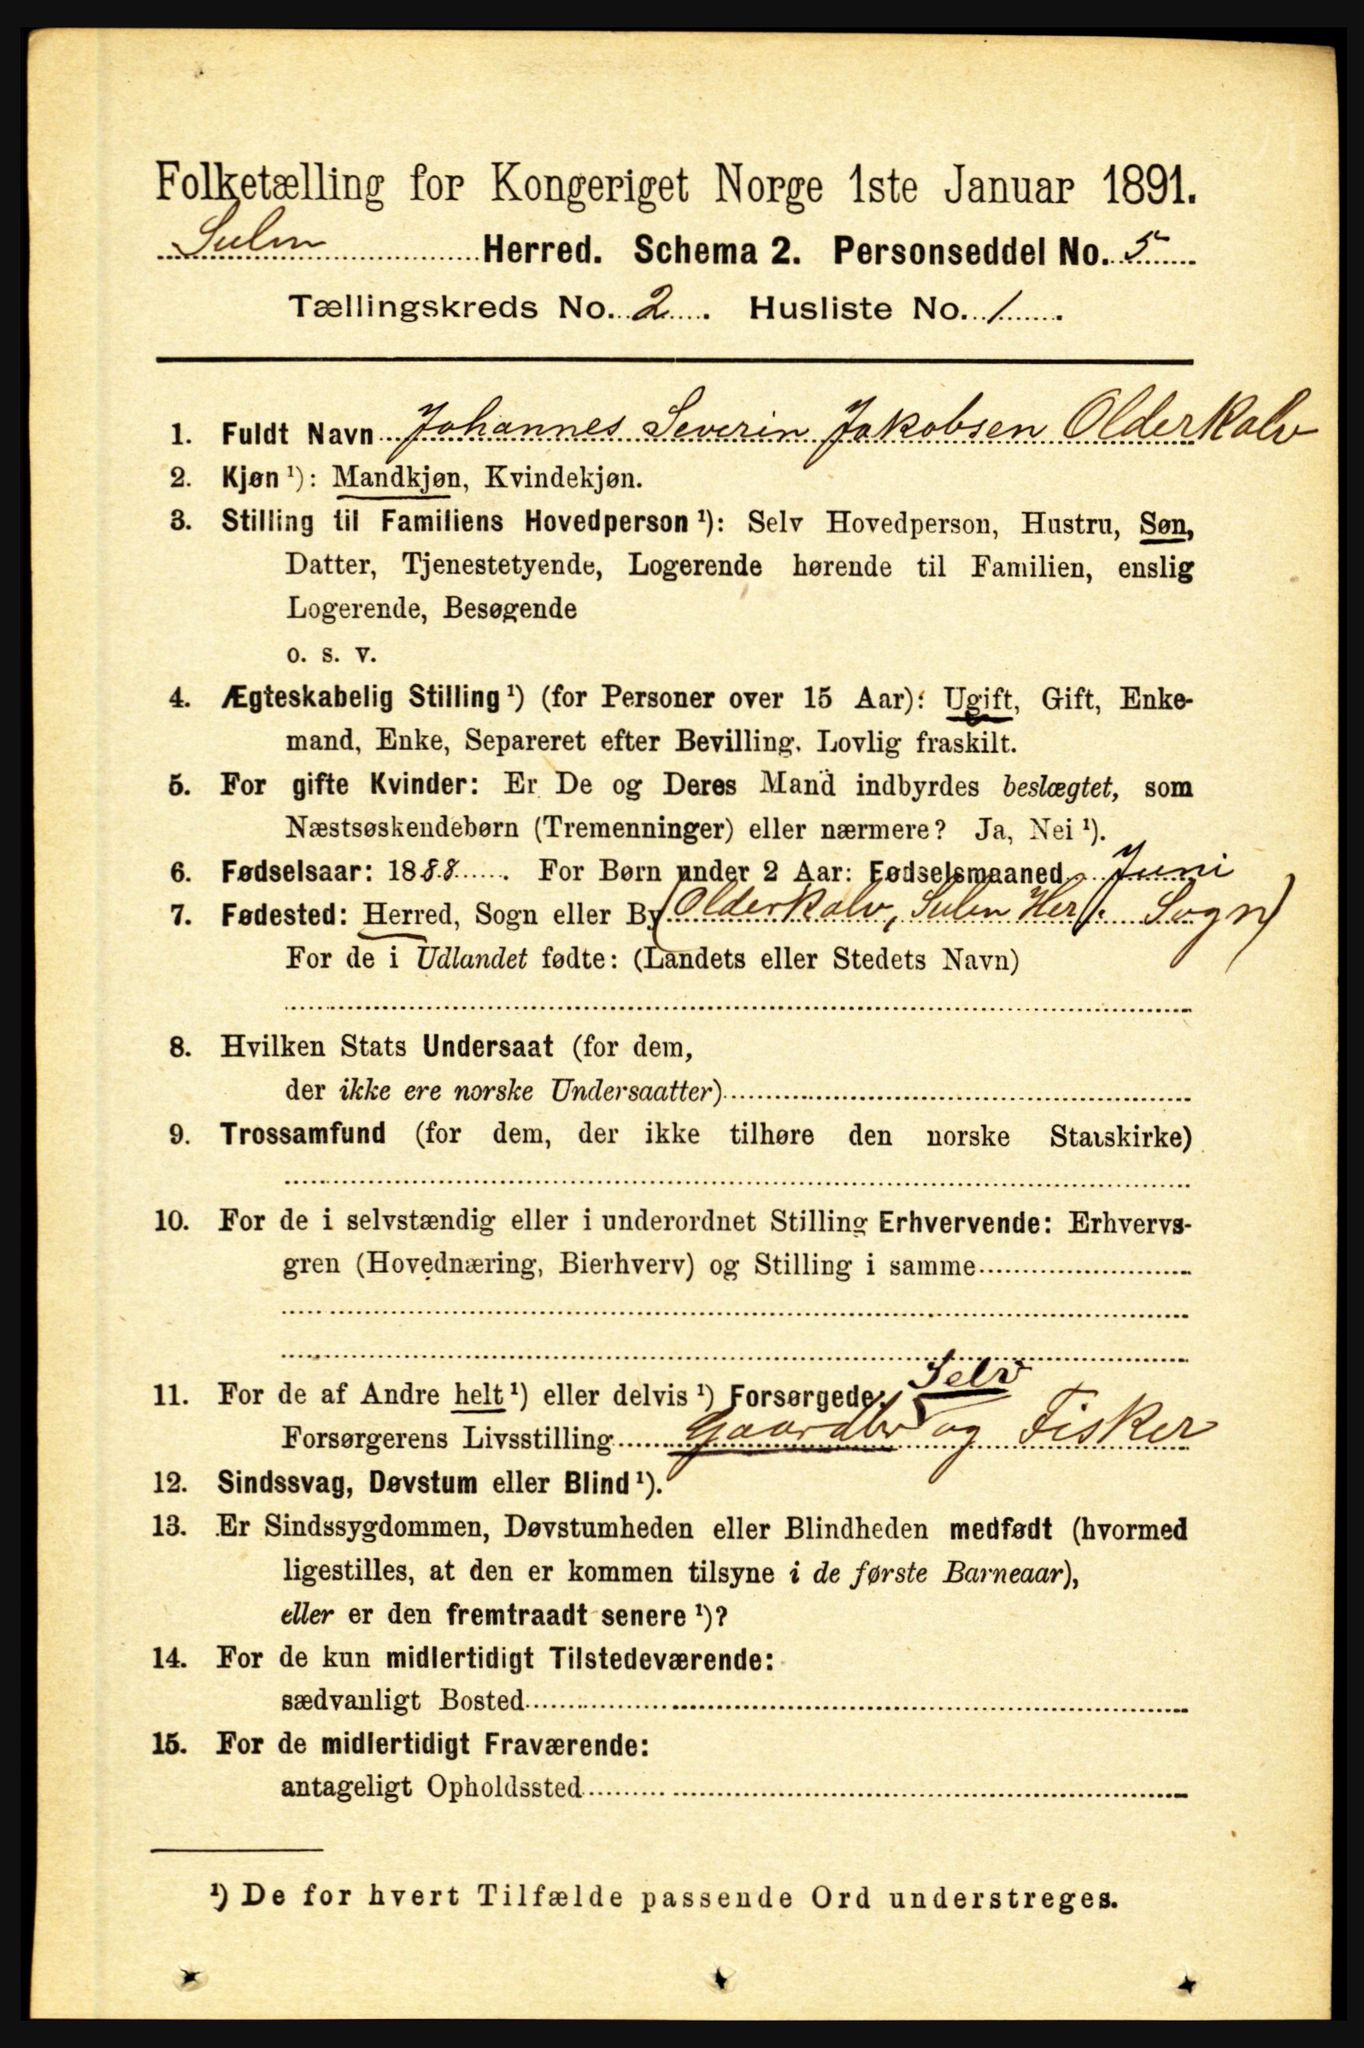 Folketælling for Kongeriget Norge 1ste Januar 1891.
Sulen Herred. Schema 2. Personseddel No. 5
Tællingskreds No. 2. Husliste No. 1.
1. Fuldt Navn Johannes Severin Jakobsen Olderkalv
2. Kjøn ¹): Mandkjøn, Kvindekjøn.
3. Stilling til Familiens Hovedperson ¹): Selv Hovedperson, Hustru, Søn,
Datter, Tjenestetyende, Logerende hørende til Familien, enslig
Logerende, Besøgende
o. s. v.
4. Ægteskabelig Stilling ¹) (for Personer over 15 Aar): Ugift, Gift, Enke-
mand, Enke, Separeret efter Bevilling. Lovlig fraskilt.
5. For gifte Kvinder: Er De og Deres Mand indbyrdes beslægtet, som
Næstsøskendebørn (Tremenninger) eller nærmere? Ja, Nei ¹).
6. Fødselsaar: 1888. For Børn under 2 Aar: Fødselsmaaned Juni
7. Fødested: Herred, Sogn eller By (Olderkalv, Sulen Her. Sogn)
For de i Udlandet fødte: (Landets eller Stedets Navn)
8. Hvilken Stats Undersaat (for dem,
der ikke ere norske Undersaatter)
9. Trossamfund (for dem, der ikke tilhøre den norske Statskirke)
10. For de i selvstændig eller i underordnet Stilling Erhvervende: Erhvervs-
gren (Hovednæring, Bierhverv) og Stilling i samme
Selv
11. For de af Andre helt ¹) eller delvis ¹) Forsørgede,
Forsørgerens Livsstilling Gaardbr og Fisker
12. Sindssvag, Døvstum eller Blind ¹).
13. Er Sindssygdommen, Døvstumheden eller Blindheden medfødt (hvormed
ligestilles, at den er kommen tilsyne i de første Barneaar),
eller er den fremtraadt senere ¹)?
14. For de kun midlertidigt Tilstedeværende:
sædvanligt Bosted
15. For de midlertidigt Fraværende:
antageligt Opholdssted
¹) De for hvert Tilfælde passende Ord understreges.